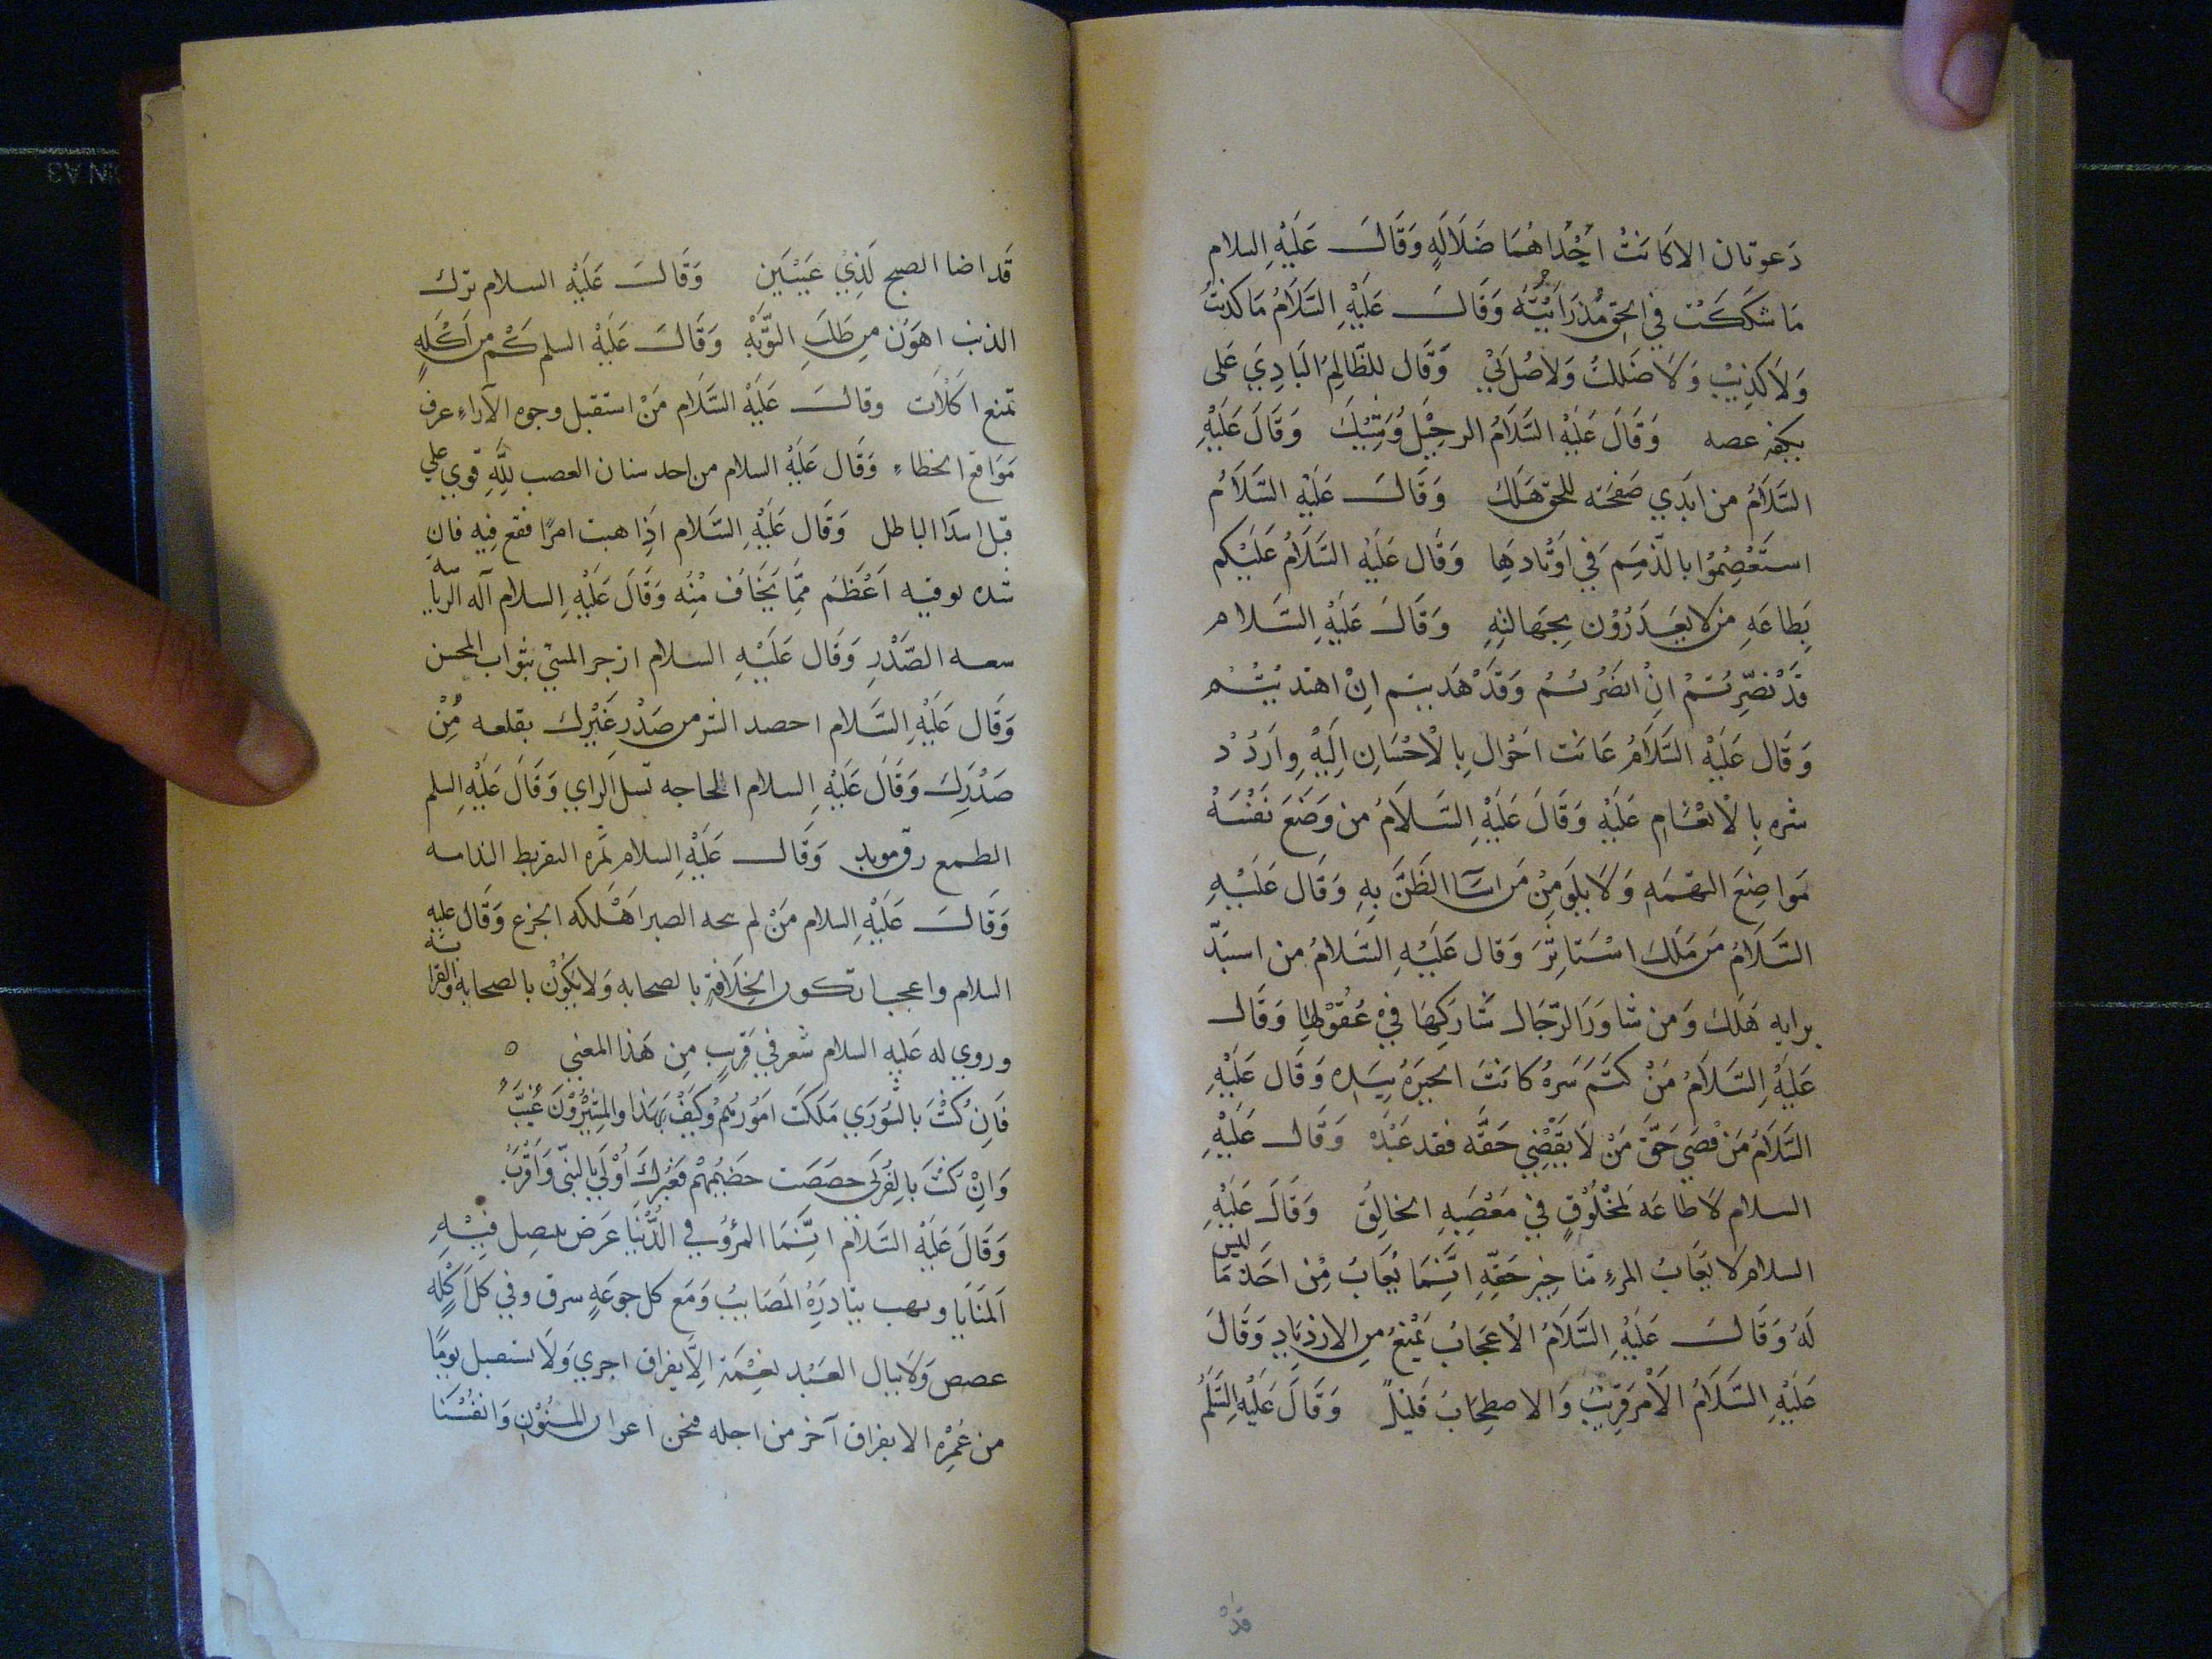 دعوتان الا كانت احداهما ضلالة وقال عليه السلام
ما شككت في الحق مذ رايته وقال عليه السلام ما كذبت
ولا كذبت ولا ضللت ولا ضل بي وقال للظالم البادي غدا
بكفه عصه وقال عليه السلام الرحيل وشيك وقال عليه
السلام من ابدي صفحته للحق هلك وقال عليه السلام
استعصموا بالذمم في اوتادها وقال عليه السلام عليكم
بطاعه من لا تعذرون بجهالته وقال عليه السلام
قد بصرتم ان ابصرتم وقد هديتم ان اهتديتم
وقال عليه السلام عاتب اخاك بالاحسان اليه واردد
شره بالانعام عليه وقال عليه السلام من وضع نفسه
مواضع التهمه ولا يلومن من اسا الظن به وقال عليه
السلام من ملك استاثر وقال عليه السلام من استبد
برايه هلك ومن شاور الرجال شاركها في عقولها وقال
عليه السلام من كتم سره كانت الخيره بيده وقال عليه
السلام من قضي حق من لا يقضي حقه فقد عبده وقال عليه
السلام لا طاعه لمخلوق في معصيه الخالق وقال عليه
السلام لا يعاب المرء بتاخير حقه انما يعاب من اخذ ما ليس
له وقال عليه السلام الاعجاب يمنع من الازدياد وقال
عليه السلام الامر قريب والاصطحاب قليل وقال عليه السلم
قد
قد اضا الصبح لذي عينين وقال عليه السلام ترك
الذنب اهون من طلب التوبه وقال عليه السلم كم من اكله
تمنع اكلات وقال عليه السلام من استقبل وجوه الآراء عرف
مواقع الخطاء وقال عليه السلام من احد سنان الغضب لله قوي علي
قتل اسدا الباطل وقال عليه السلام اذا هبت امرا فقع فيه فان
شده توقيه اعظم مما يخاف منه وقال عليه السلام آله الرياسه
سعه الصدر وقال عليه السلام ازجر المسيء بثواب المحسن
وقال عليه السلام احصد الشر من صدر غيرك بقلعه من
صدرك وقال عليه السلام اللجاجه تسل الراي وقال عليه السلم
الطمع رق موبد وقال عليه السلام ثمره التفريط الندامه
وقال عليه السلام من لم ينجه الصبر اهلكه الجزع وقال عليه
السلام واعجبا تكون الخلافة بالصحابه ولا يكون بالصحابه والقرابه
وروي له عليه السلام شعر في قريب من هذا المعني
فان كنت بالشوري ملكت امورهم وكيف بهذا والمشيرون غيب
وان كنت بالقربي حججت خصيمهم فغيرك اولي بالنبي واقرب
وقال عليه السلام انما المرؤ في الدنيا غرض تنتصل فيه
المنايا ونهب تبادره المصايب ومع كل جرعه شرق وفي كل اكله
غصص ولا ينال العبد نعمة الا بفراق اخري ولا يستقبل يوما
من عمره الا بفراق آخر من اجله فنحن اعوان المنون وانفسنا